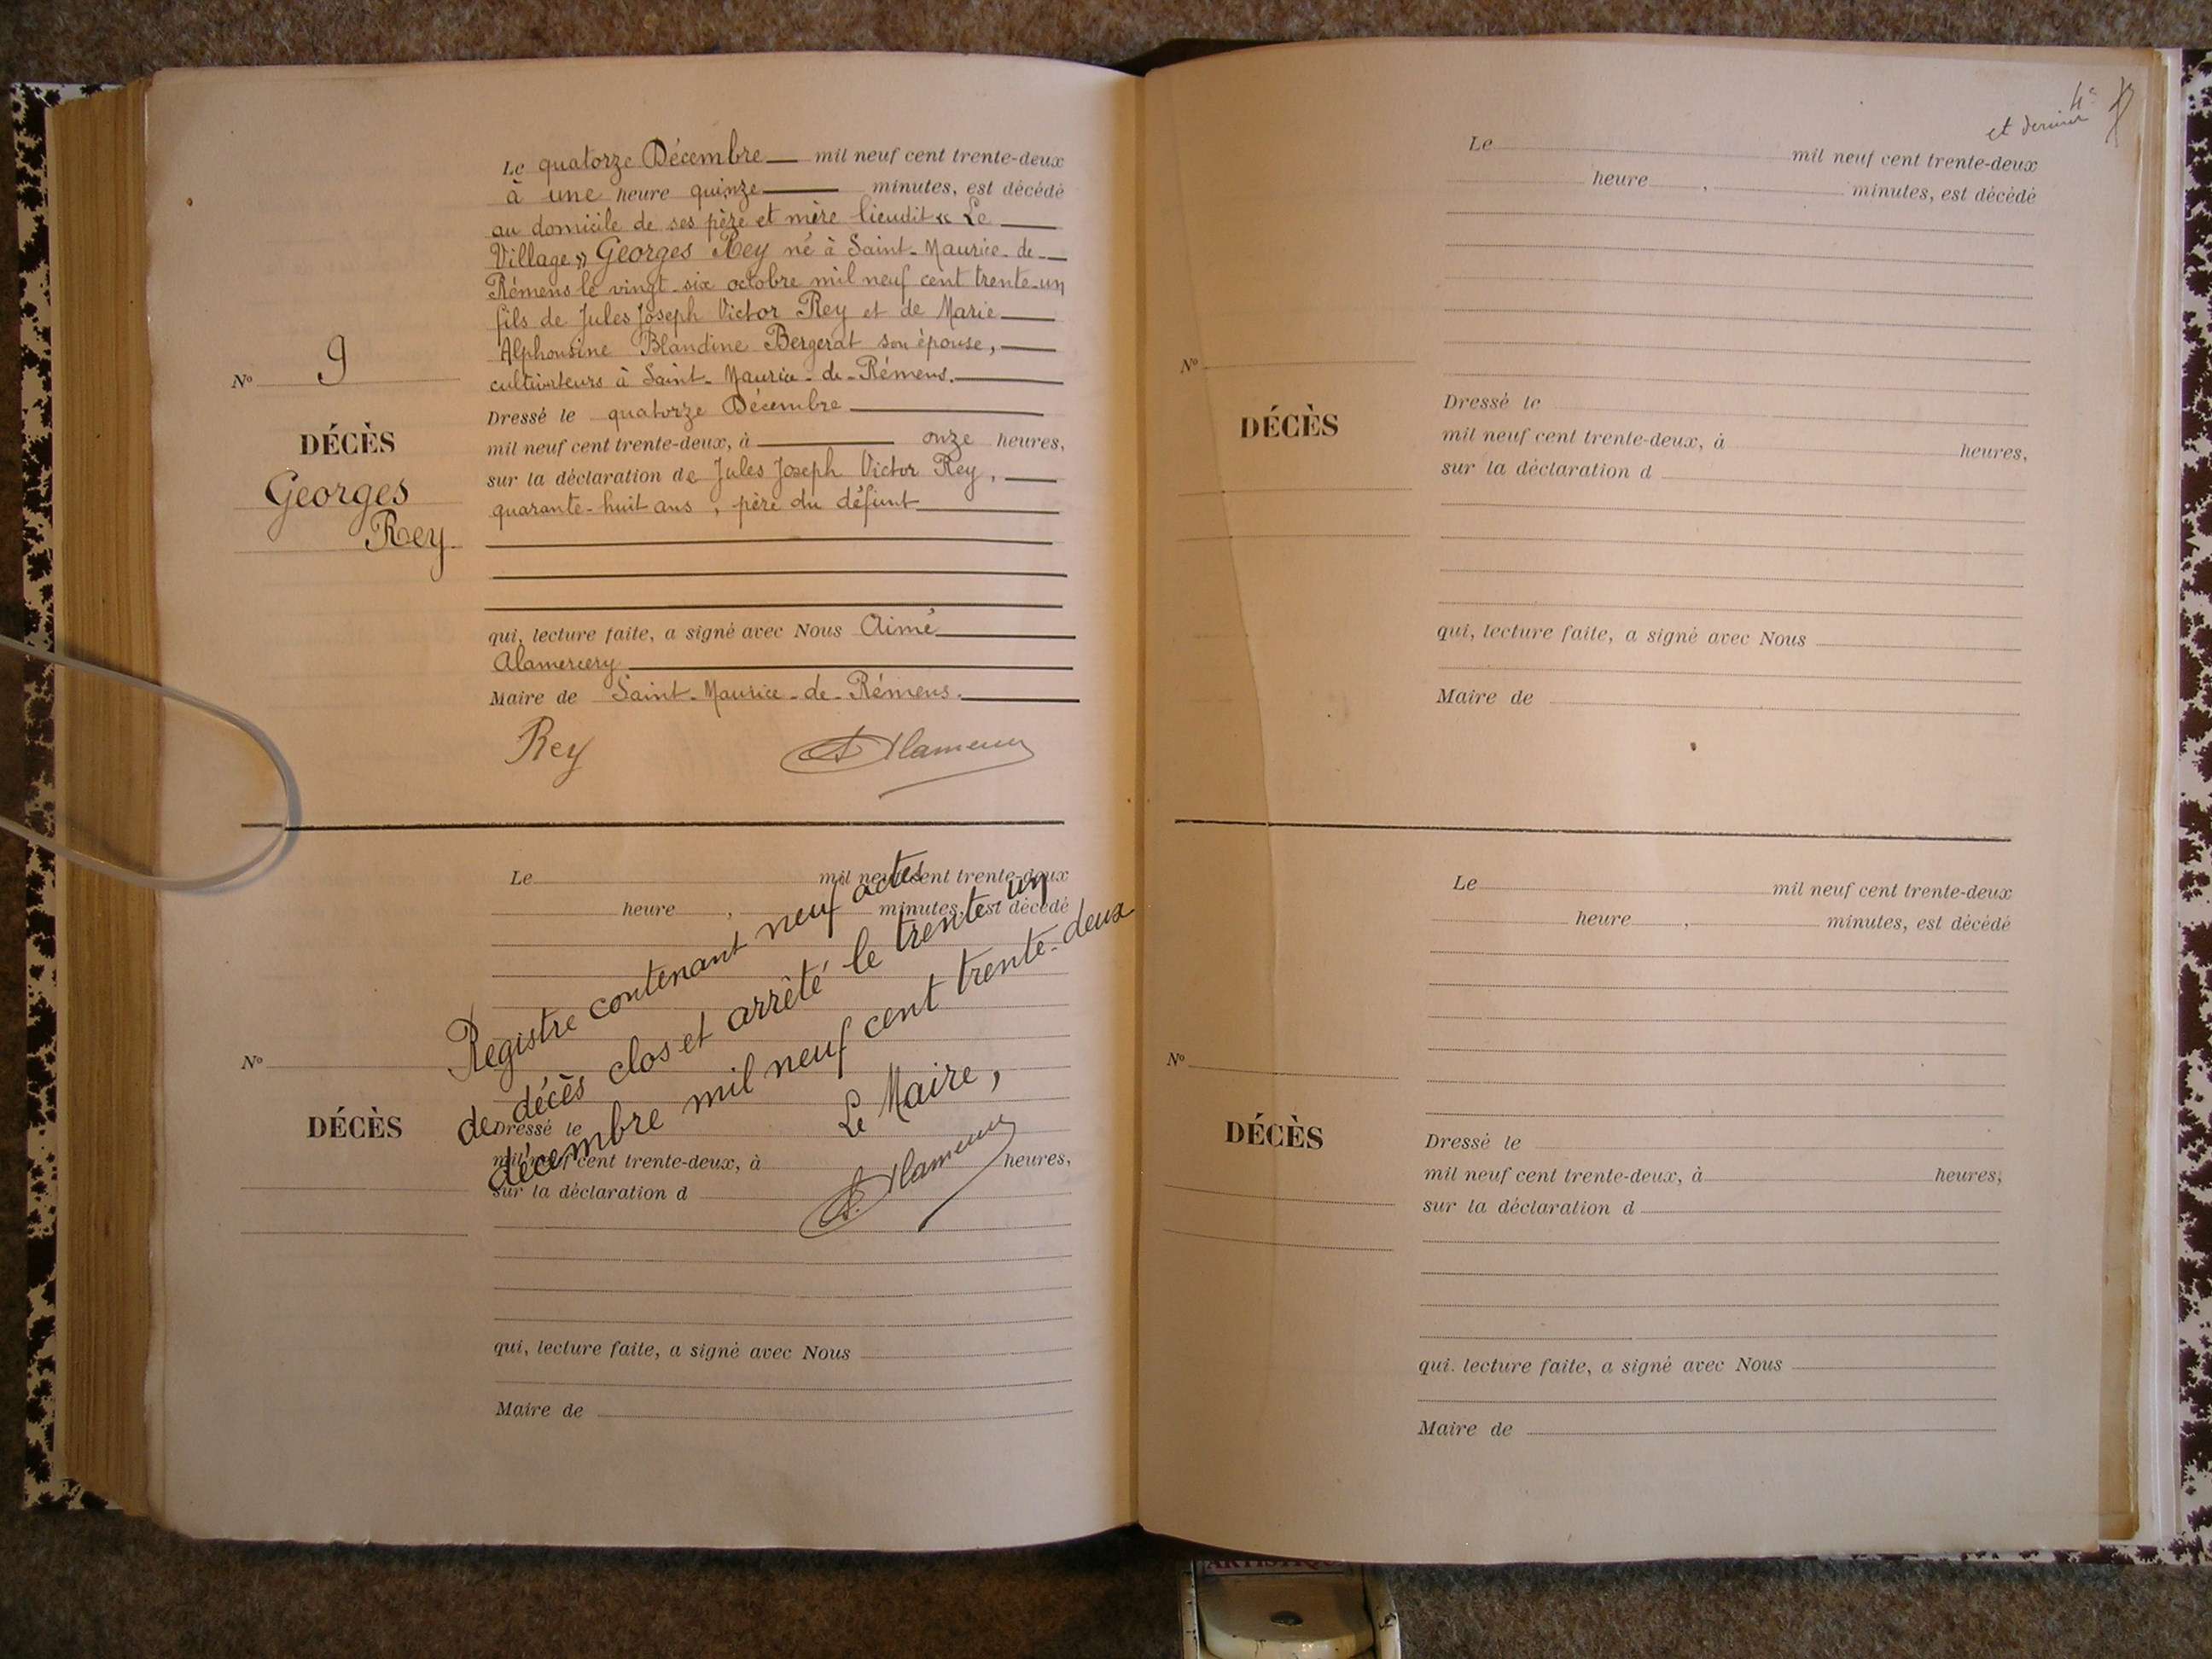 Le quatorze Décembre mil neuf cent trente-deux
à une heure quinze minutes, est décédé
au domicile de ses père et mère lieudit « Le
Village » Georges Rey né à Saint-Maurice-de-
Rémens le vingt-six octobre mil neuf cent trente-un
fils de Jules Joseph Victor Rey et de Marie
Alphonsine Blandine Bergerat son épouse,
cultivateurs à Saint-Maurice-de-Rémens.
Dressé le quatorze Décembre
mil neuf cent trente-deux, à onze heures,
sur la déclaration de Jules Joseph Victor Rey,
quarante-huit ans, père du défunt
qui, lecture faite, a signé avec Nous Aimé
Alamercery
Maire de Saint-Maurice-de-Rémens.
Rey
Nº 9
DÉCÈS
Georges
Rey
Le mil neuf cent trente-deux
heure , minutes, est décédé
Registre contenant neuf actes
de décès clos et arrêté le trente un
décembre mil neuf cent trente-deux
Le Maire,
Nº
DÉCÈS
Dressé le
mil neuf cent trente-deux, à heures,
sur la déclaration d
qui, lecture faite, a signé avec Nous
Maire de
4e
et dernier
Le mil neuf cent trente-deux
heure , minutes, est décédé
Nº
DÉCÈS
Dressé le
mil neuf cent trente-deux, à heures,
sur la déclaration d
qui, lecture faite, a signé avec Nous
Maire de
Le mil neuf cent trente-deux
heure , minutes, est décédé
Nº
DÉCÈS
Dressé le
mil neuf cent trente-deux, à heures,
sur la déclaration d
qui, lecture faite, a signé avec Nous
Maire de